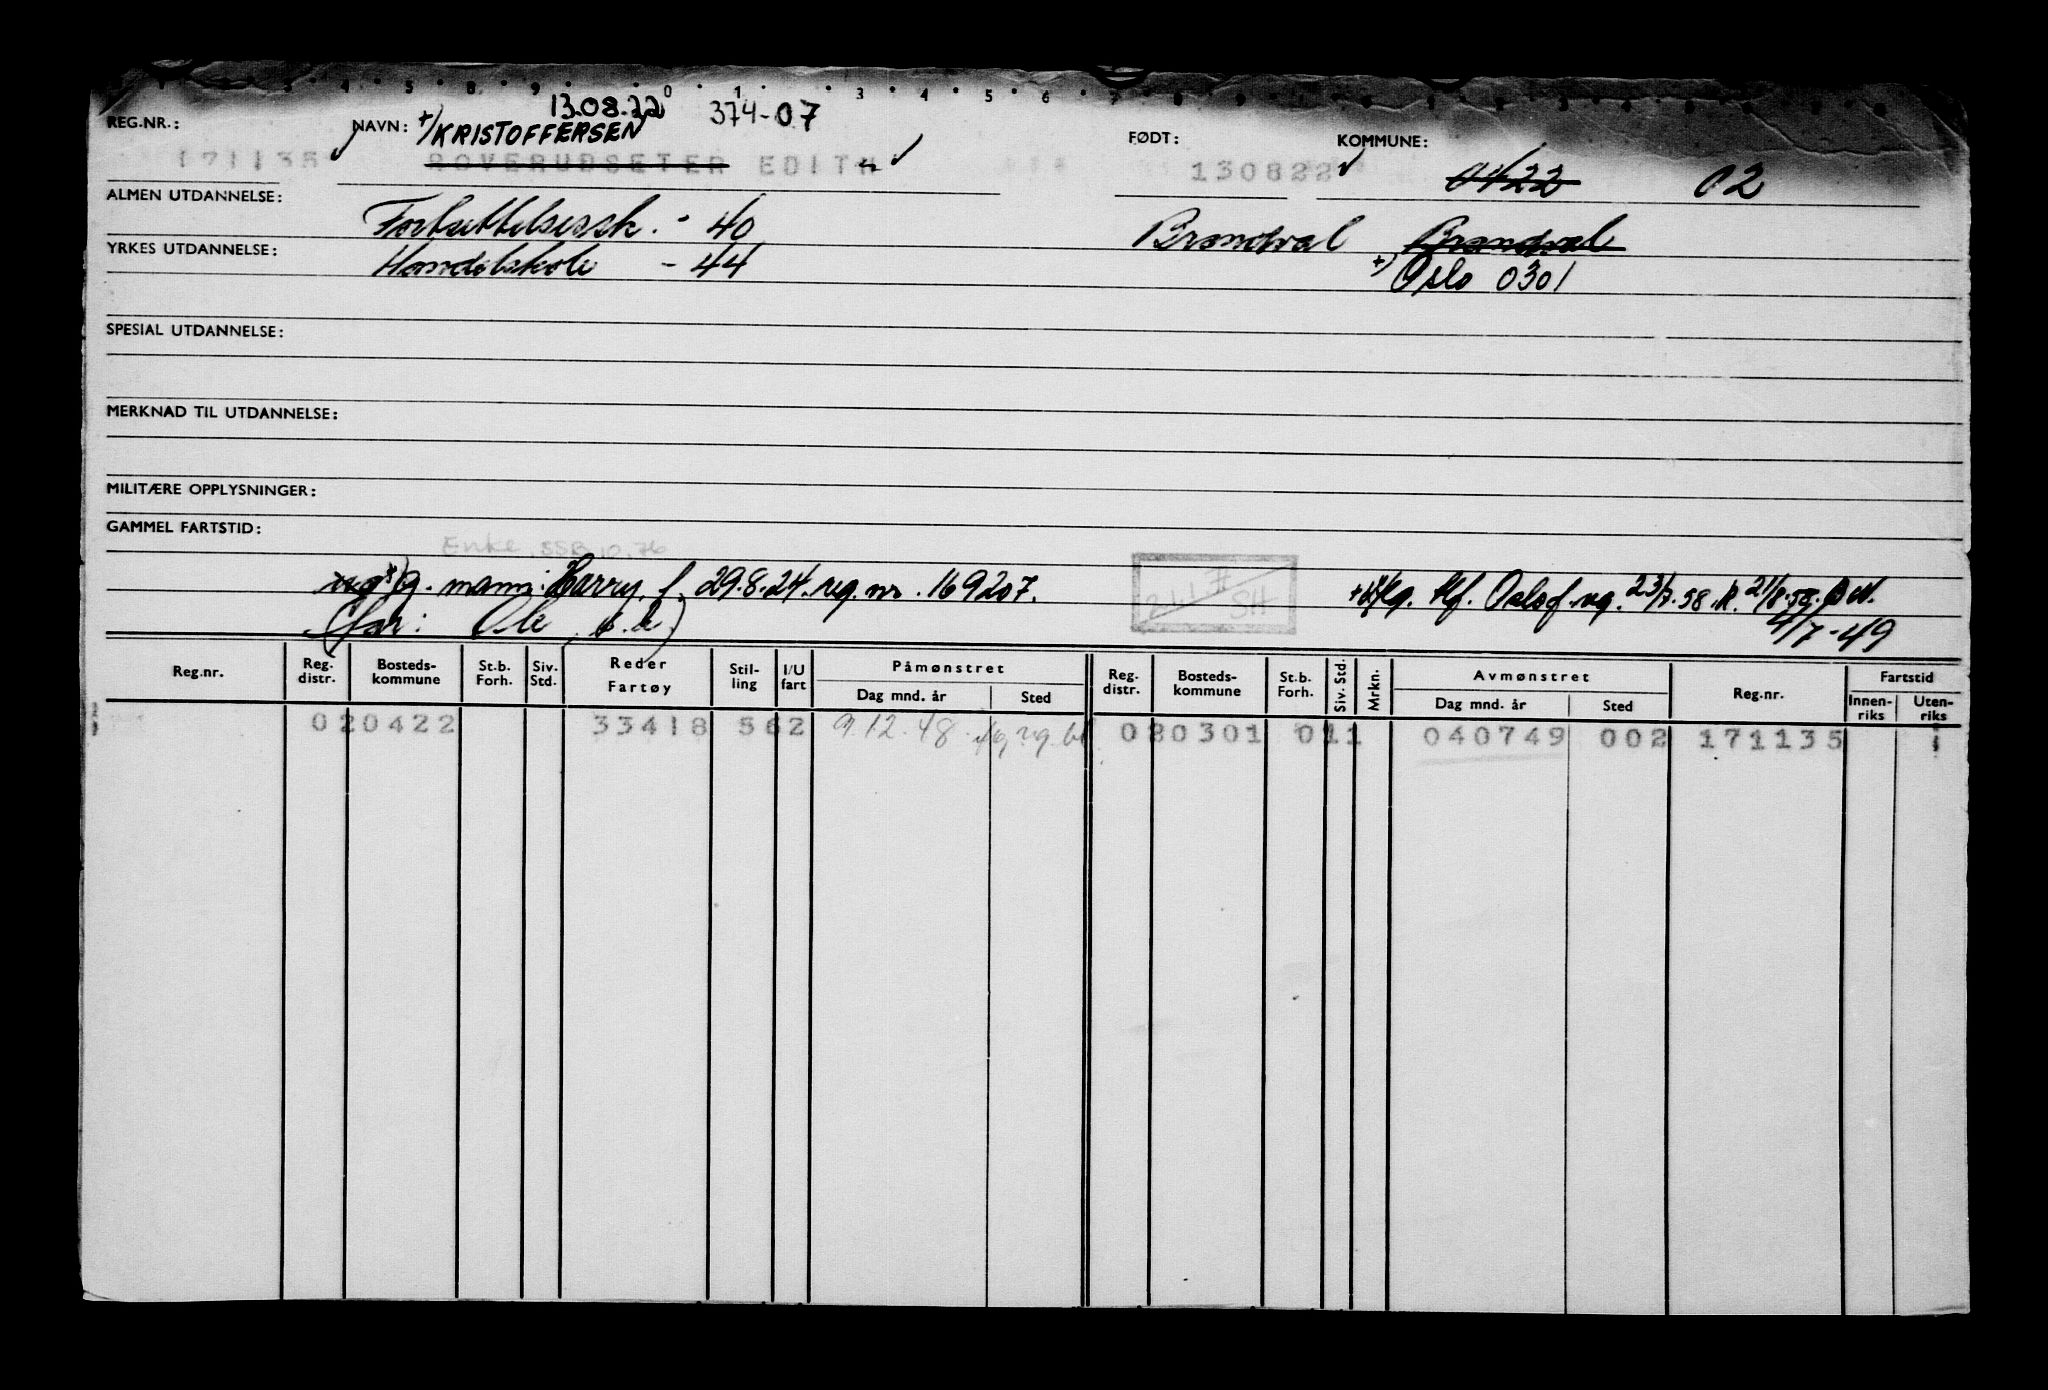 1 2 3 4 5 6 7 8 9 0 1 2 3 4 5 6 7 8 9
13.08.22 374-07
REG.NR.: NAVN: +) KRISTOFFERSEN FØDT: KOMMUNE:
171135 ROVERUDSETER EDITH 130822 0422 02
ALMEN UTDANNELSE: Fortsettelsessk. - 40 Brandval Brandval
YRKES UTDANNELSE: Handelskole - 44 +) Oslo 0301
SPESIAL UTDANNELSE:
MERKNAD TIL UTDANNELSE:
MILITÆRE OPPLYSNINGER:
GAMMEL FARTSTID:
Enke SSB 10.76
g. mann: Harry, f. 29.8.24. reg. nr. 169207. 21.1 SH Oslo f. reg. 23/7.58.
(far: Ole 4/7-49
Reg.nr. Reg. distr. Bosteds-kommune St.b. Forh. Siv. Std. Reder Fartøy Stil-ling I/U fart Påmønstret Dag mnd. år Sted Reg. distr. Bosteds-kommune St.b. Forh. Siv. Std. Mrkn. Avmønstret Dag mnd. år Sted Reg.nr. Fartstid Innen-riks Uten-riks
020422 33418 562 9.12.48 020301 011 040749 002 171135 1